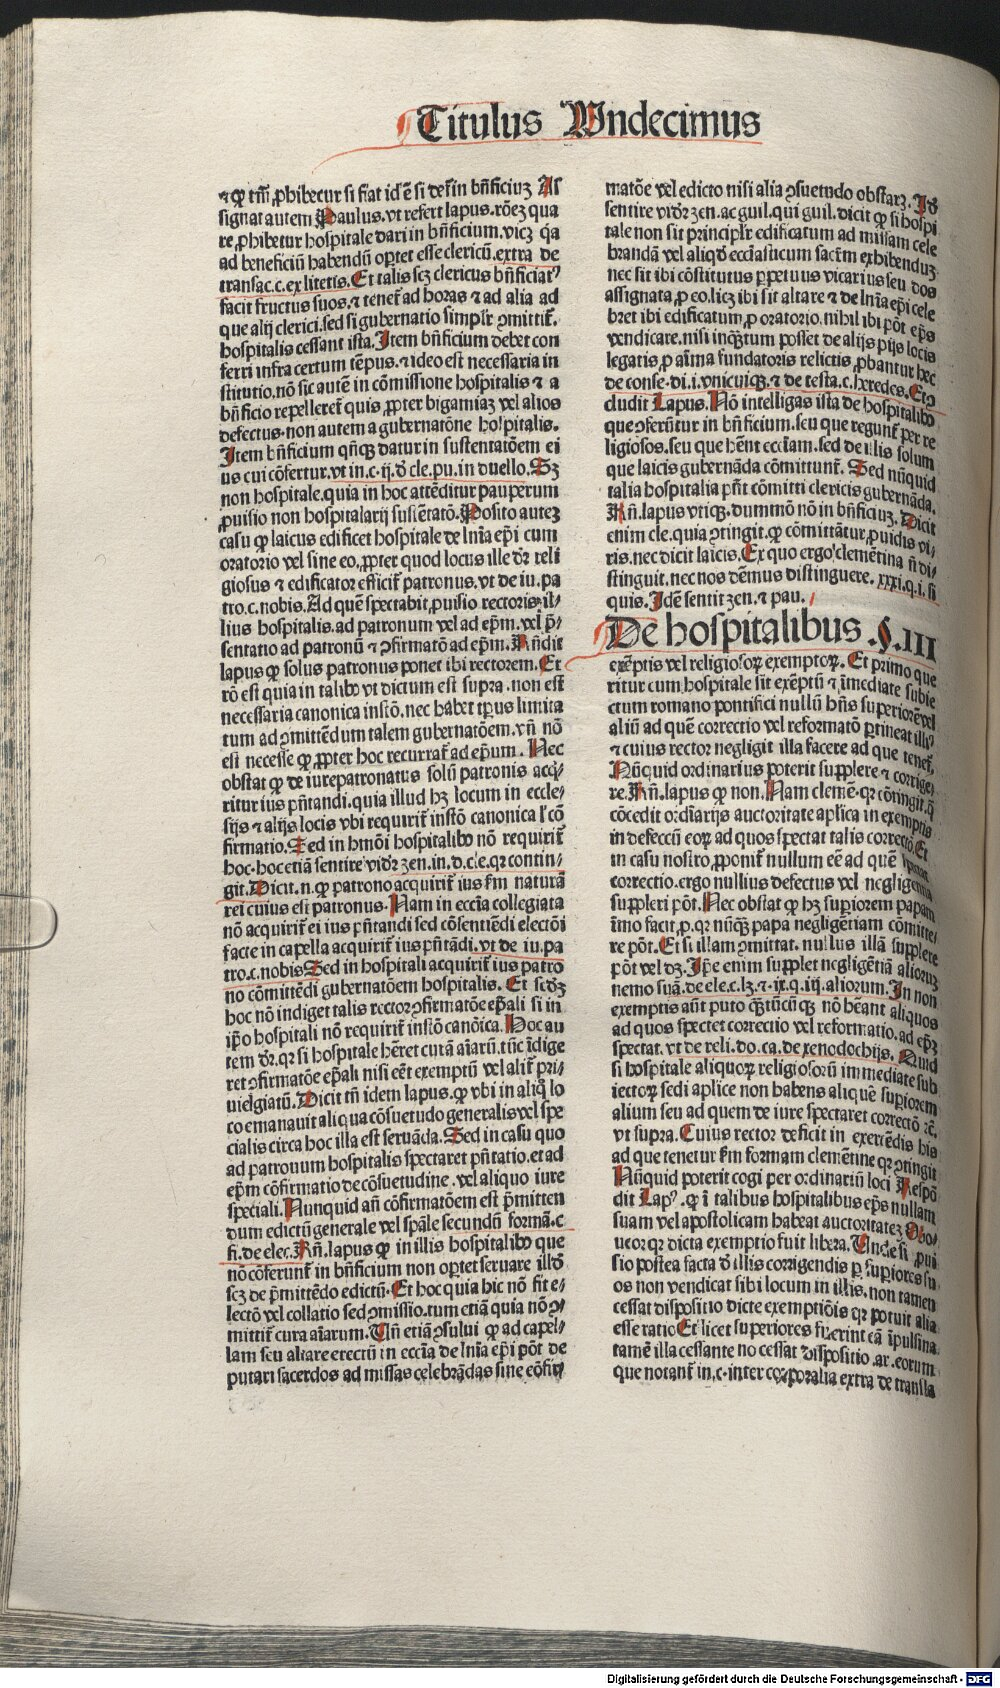 Titulus Vndecimus
⁊ ꝙ tm̄ ꝓhibetur si fiat id ē si desin bn̄ficiuꝫ As
signat autem Paulus. vt refert lapus. rōeꝫ qua
re ꝓhibetur hospitale dari in bn̄ficium. vicꝫ qa
ad beneficiū habendū oꝑtet esse clericū. extra de
transac. c. ex litetis. Et talis scꝫ clericus bn̄ficiatꝰ
facit fructus suos. ⁊ tenet̄ ad horas ⁊ ad alia ad
que alij clerici. sed si gubernatio simplr̄ ꝯmittit̄.
hospitalis cessant ista. Item bn̄ficium debet con
ferri infra certum tēpus. ⁊ ideo est necessaria in
stitutio. nō sic autē in cōmissione hospitalis ⁊ a
bn̄ficio repelleret̄ quis ꝓpter bigamiaꝫ vel alios
defectus. non autem a gubernatōne hospitalis.
Item bn̄ficium qn̄qꝫ datur in sustentatōem ei
us cui cōfertur. vt in. c. ij. d̄ cle. pu. in duello. Sꝫ
non hospitale. quia in hoc attēditur pauperum
ꝓuisio non hospitalarij sustētatō. Posito auteꝫ
casu ꝙ laicus edificet hospitale de lnīa ep̄i cum
oratorio vel sine eo, ꝓpter quod locus ille dr̄ reli
giosus ⁊ edificator efficit̄ patronus. vt de iu. pa
tro. c. nobis. Ad quē spectabit ꝓuisio rectoris il⸗
lius hospitalis. ad patronum vel ad ep̄m. vel p̄⸗
sentatio ad patronū ⁊ ꝯfirmatō ad ep̄m. Rn̄dit
lapus ꝙ solus patronus ponet ibi rectorem. Et
rō est quia in talibꝰ vt dictum est supra. non est
necessaria canonica instō. nec habet tp̄us limita
tum ad ꝯmittēdum talem gubernatōem. vn̄ nō
est necesse ꝙ ꝓpter hoc recurrat̄ ad ep̄um. Nec
obstat ꝙ de iurepatronatus solū patronis acq̄⸗
ritur ius pn̄tandi. quia illud hꝫ locum in eccle⸗
sijs ⁊ alijs locis vbi requirit̄ instō canonica ł cō
firmatio. Sed in hmōi hospitalibꝰ nō requirit̄
hoc. hoc etiā sentire vidr̄ zen. in. d. cle. qr contin⸗
git. Dicit. n. ꝙ patrono acquirit̄ ius ẜm naturā
rei cuius est patronus. Nam in ecc̄ia collegiata
nō acquirit̄ ei ius pn̄tandi sed cōsentiēdi electōi
facte in capella acquirit̄ ius pn̄tādi. vt de iu. pa
tro. c. nobis Sed in hospitali acquirit̄ ius patro
no cōmittēdi gubernatōem hospitalis. Et scd̄ꝫ
hoc nō indiget talis rector ꝯfirmatōe ep̄ali si in
ip̄o hospitali nō requirit̄ instō canōica. Hoc au
tem dr̄. qr si hospitale hēret curā aīarū. tūc īdige
ret ꝯfirmatōe ep̄ali nisi eēt exemptū vel alit̄ pri⸗
uielgiatū. Dicit tn̄ idem lapus. ꝙ vbi in aliq̄ lo
co emanauit aliqua cōsuetudo generalis vel spe
cialis circa hoc illa est seruāda. Sed in casu quo
ad patronum hospitalis spectaret pn̄tatio. et ad
ep̄m cōfirmatio de cōsuetudine. vel aliquo iure
speciali. Nunquid an̄ cōfirmatōem est p̄mitten
dum edictū generale vel sp̄ale secundū formā. c
fi. de elec. Rn̄. lapus ꝙ in illis hospitalibꝰ que
nō cōferunt̄ in bn̄ficium non oꝑtet seruare illd̄
scꝫ de p̄mittēdo edictū. Et hoc quia hic nō fit e⸗
lectō vel collatio sed ꝯmissio. tum etiā quia nō ꝯ⸗
mittit̄ cura aīarum. Vn̄ etiā ꝯsului ꝙ ad capel⸗
lam seu altare erectū in ecc̄ia de lnīa ep̄i pōt de
putari sacerdos ad missas celebrādas sine cōfir⸗
matōe vel edicto nisi alia ꝯsuetudo obstarꝫ. Id̄
sentire vidr̄ zen. ac guil. qui guil. dicit ꝙ si hospi
tale non sit principlr̄ edificatum ad missam cele
brandā vel aliqd̄ ecciasticum sacr̄m exhibenduꝫ
nec sit ibi cōstitutus ꝑpetuus vicarius seu dos
assignata, ꝓ eo. licꝫ ibi sit altare ⁊ de lnīa ep̄i cele
bret ibi edificatum, ꝓ oratorio. nihil ibi pōt ep̄s
vendicare. nisi inqꝫtum posset de alijs pijs locis
legatis, ꝓ aīma fundatoris relictis, ꝓbantur hec
de conse. di. i. vnicuiqꝫ. ⁊ de testa. c. heredes. Et ꝯ
cludit Lapus. Nō intelligas ista de hospitalibꝰ
que ꝯferūtur in bn̄ficium. seu que regunt̄ per re
ligiosos. seu que hēnt ecc̄iam. sed de illis solum
que laicis gubernāda cōmittunt̄. Sed nūquid
talia hospitalia pn̄t cōmitti clericis gubernāda.
Rn̄. lapus vtiqꝫ. dummō nō in bn̄ficiuꝫ. Dicit
enim cle. quia ꝯtingit. ꝙ cōmittātur, ꝓuidis vi⸗
ris. nec dicit laicis. Ex quo ergo clemētina n̄ di⸗
stinguit. nec nos dēmus distinguere. xxxi. q. i. si
quis. Idē sentit zen. ⁊ pau.
De hospitalibus. §. III
exēptis vel religiosoꝝ exemptoꝝ. Et primo que
ritur cum hospitale sit exēptū ⁊ īmediate subie
ctum romano pontifici nullū hn̄s superiorē vel
aliū ad quē correctio vel reformatō ꝑtineat illiꝰ
⁊ cuius rector negligit illa facere ad que tenet̄,
Nūquid ordinarius poterit supplere ⁊ corrige⸗
re. Rn̄. lapus ꝙ non. Nam clemē. qr cōtingit. q̄
cōcedit ordīarijs auctoritate aplica in exemptis
in defectū eoꝝ ad quos spectat talis correctō. Et
in casu nostro, ꝓponit̄ nullum eē ad quē spectat
correctio. ergo nullius defectus vel negligentia
suppleri pōt. Nec obstat ꝙ hꝫ superiorem papam
īmo facit, ꝓ. qr nūqꝫ papa negligētiam cōmitte⸗
re pōt. Et si illam ꝯmittat. nullus illā supplere
pōt vel dꝫ. Ip̄e enim supplet negligētiā alioruꝫ
nemo suā. de ele. c. lꝫ. ⁊. ix. q. iij. aliorum. In non
exemptis aūt puto qꝫtūcūqꝫ nō hēant aliquos
ad quos spectet correctio vel reformatio. ad ep̄ꝫ
spectat. vt de reli. do. ca. de xenodochijs. Quid
si hospitale aliquoꝝ religiosorū immediate sub
iectoꝝ sedi aplice non habens aliquē superiorem
alium seu ad quem de iure spectaret correctō ⁊c̄.
vt supra. Cuius rector deficit in exercēdis his
ad que tenetur ẜm formam clemētine qr ꝯtingit
Nūquid poterit cogi per ordinariū loci Respō
dit Lapꝰ. ꝙ ī talibus hospitalibus ep̄s nullam
suam vel apostolicam habeat auctoritateꝫ
ueor qr dicta exemptio fuit libera. Vnde si
sio postea facta d̄ illis corrigendis ꝑ superiores su
os non vendicat sibi locum in illis. non tamen
cessat dispositio dicte exemptiōis qr potuit alia
esse ratio Et licet superiores fuerint eā īpulsina
tamē illa cessante no cessat dispositio. ar. eorum
que notant̄ in. c. inter corꝑoralia extra de transla
Digitalisierung gefördert durch die Deutsche Forschungsgemeinschaft - DFG